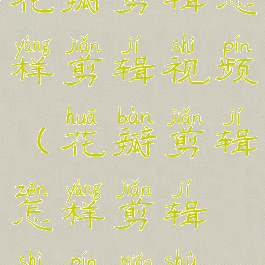 花瓣剪辑怎
yàng jiǎn jí shì pín
样剪辑视频
huā bàn jiǎn jí
（花瓣剪辑
zěn yàng jiǎn jí
怎样剪辑
shì pín